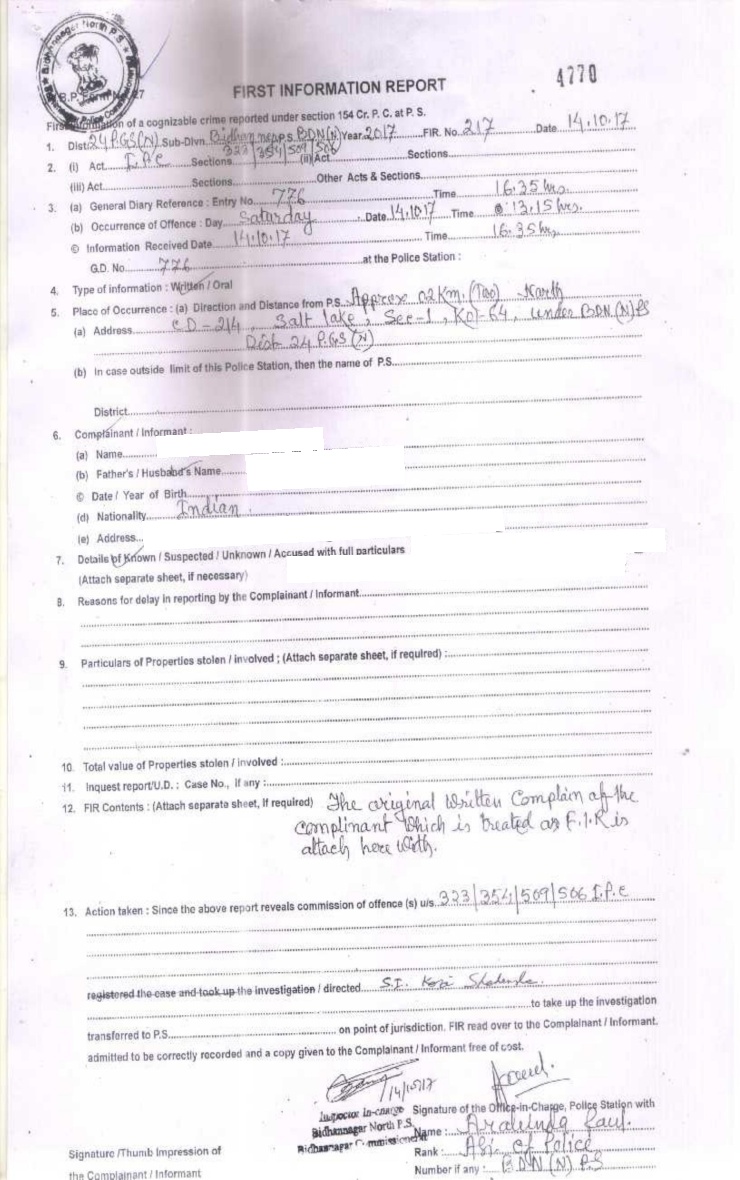 Bidhannagar North P.S.
4770
FIRST INFORMATION REPORT
First Information of a cognizable crime reported under section 154 Cr. P. C. at P. S.
1. Dist. 24 P.GS(N) Sub-Divn. Bidhan P.S. BDN(N) Year 2017 FIR. No. 217 Date 14.10.17
2. (i) Act I.P.C Sections 323/354/509/506 (ii) Act Sections
(iii) Act Sections Other Acts & Sections
3. (a) General Diary Reference : Entry No. 776 Time 16.35 hrs.
(b) Occurrence of Offence : Day Saturday Date 14.10.17 Time 13.15 hrs.
© Information Received Date 14.10.17 Time 16.35 hrs.
G.D. No. 776 at the Police Station :
4. Type of information : Written / Oral
5. Place of Occurrence : (a) Direction and Distance from P.S. Approx 02 Km. (Two) North
(a) Address CD-214, Salt lake, Sec-1, Kol-64, under BDN(N)PS
Dist- 24 P.GS(N)
(b) In case outside limit of this Police Station, then the name of P.S.
District
6. Complainant / Informant :
(a) Name
(b) Father's / Husband's Name
© Date / Year of Birth
(d) Nationality Indian
(e) Address
7. Details of Known / Suspected / Unknown / Accused with full particulars
(Attach separate sheet, if necessary)
8. Reasons for delay in reporting by the Complainant / Informant
9. Particulars of Properties stolen / involved ; (Attach separate sheet, if required) :
10. Total value of Properties stolen / involved :
11. Inquest report/U.D. : Case No., if any :
12. FIR Contents : (Attach separate sheet, if required) The original Written Complain of the
complinant Which is treated as F.I.R is
attach here with.
13. Action taken : Since the above report reveals commission of offence (s) u/s. 323/354/509/506 I.P.C
registered the case and took up the investigation / directed S.I.
to take up the investigation
transferred to P.S. on point of jurisdiction. FIR read over to the Complainant / Informant.
admitted to be correctly recorded and a copy given to the Complainant / Informant free of cost.
14/10/17
Inspector In-charge
Bidhannagar North P.S.
Bidhannagar Commissionerate
Signature of the Office-in-Charge, Police Station with
Name :
Rank : of Police
Number if any : BDN (N) PS
Signature /Thumb Impression of
the Complainant / Informant